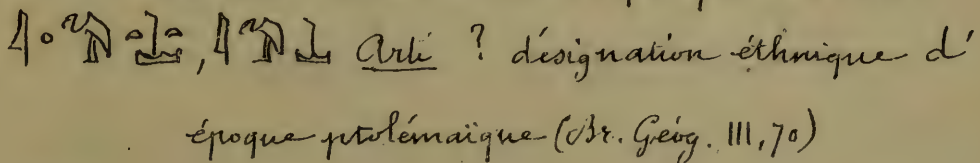 Arti ? désignation éthnique d'
époque ptolémaïque (Br. Géog. III, 70)